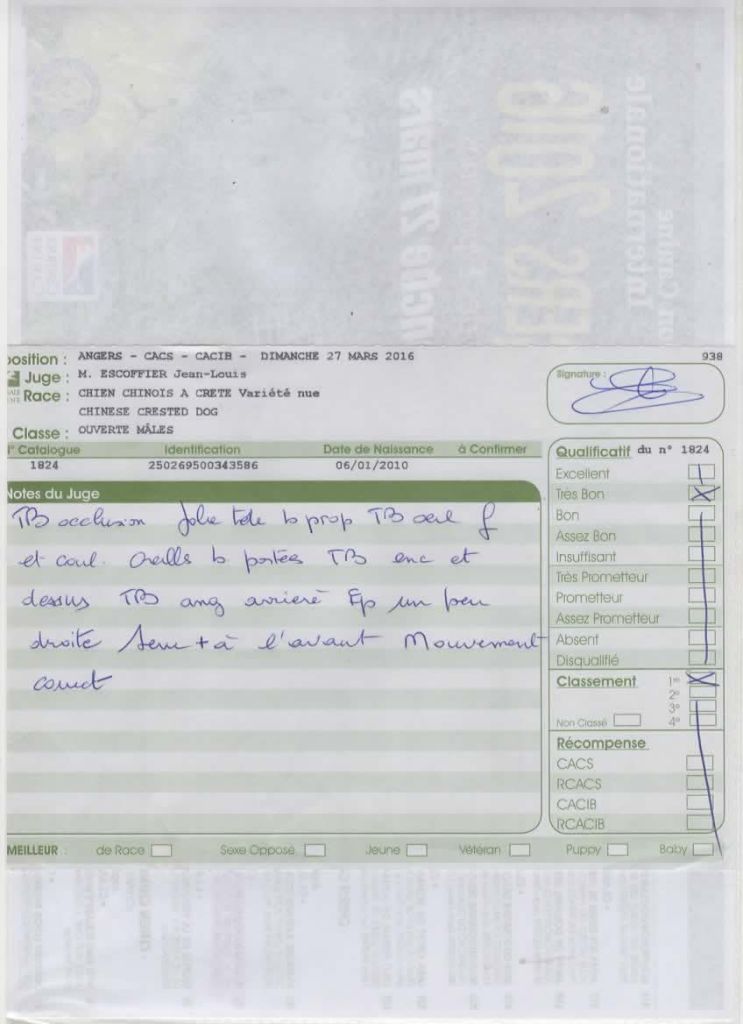 position : ANGERS - CACS - CACIB - DIMANCHE 27 MARS 2016
938
Juge : M. ESCOFFIER Jean-Louis
Signature :
Race : CHIEN CHINOIS A CRETE Variété nue
CHINESE CRESTED DOG
Classe : OUVERTE MÂLES
° Catalogue Identification Date de Naissance à Confirmer
1824 250269500343586 06/01/2010
Notes du Juge
TB occlusion Jolie tete b prop TB oeil f
et coul. Oreills b portées TB enc et
dessus TB ang arrière Ep un peu
droite + à l'avant Mouvement
correct
Qualificatif du n° 1824
Excellent
Très Bon
Bon
Assez Bon
Insuffisant
Très Prometteur
Prometteur
Assez Prometteur
Absent
Disqualifié
Classement 1er
2e
3e
Non Classé 4e
Récompense
CACS
RCACS
CACIB
RCACIB
MEILLEUR : de Race Sexe Opposé Jeune Vétéran Puppy Baby